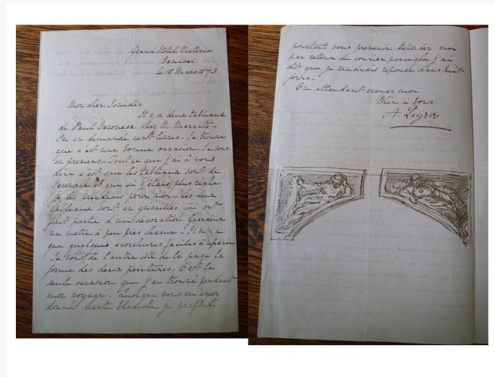 Grand Hotel Victoria
Venise
le 18 Mars 1873
Mon cher
Il y a deux tableaux
de Paul Veronese chez M. Marcato.
On en demande cent Livres. Je trouve
que c'est une bonne occasion.
en prenant. Tout ce que j'ai à vous
dire c'est que les tableaux sont de
Veronese et que si j'étais plus riche
je les prendrais pour moi. Ces deux
tableaux sont en grisailles qui ont
fait partie d'une décoration
un mètre à peu près chacun. Il n'y a
que quelques écorchures faciles à réparer.
de l'autre côté de la page la
forme des deux peintures. C'est la
seule occasion que j'ai trouvé pendant
mon voyage. Quoique vous m'ayez
donné carte blanche je préfère
pourtant vous prévenir. Répondez moi
par retour du courrier parceque j'ai
dit que je rendrais réponse dans huit
jours.
En attendant croyez moi
bien à vous
A Legros